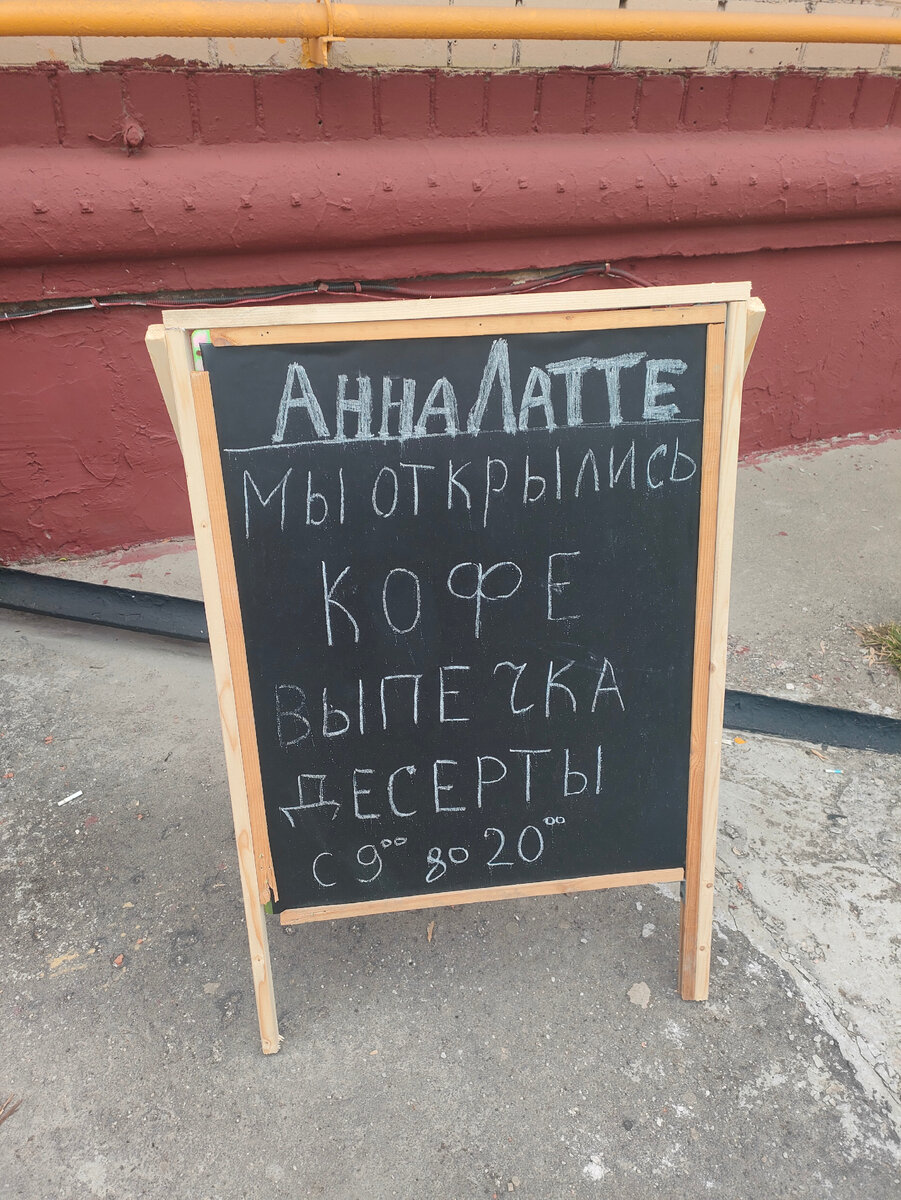 АннаЛатте
Мы открылись
КОФЕ
ВЫПЕЧКА
ДЕСЕРТЫ
с 9⁰⁰ до 20⁰⁰